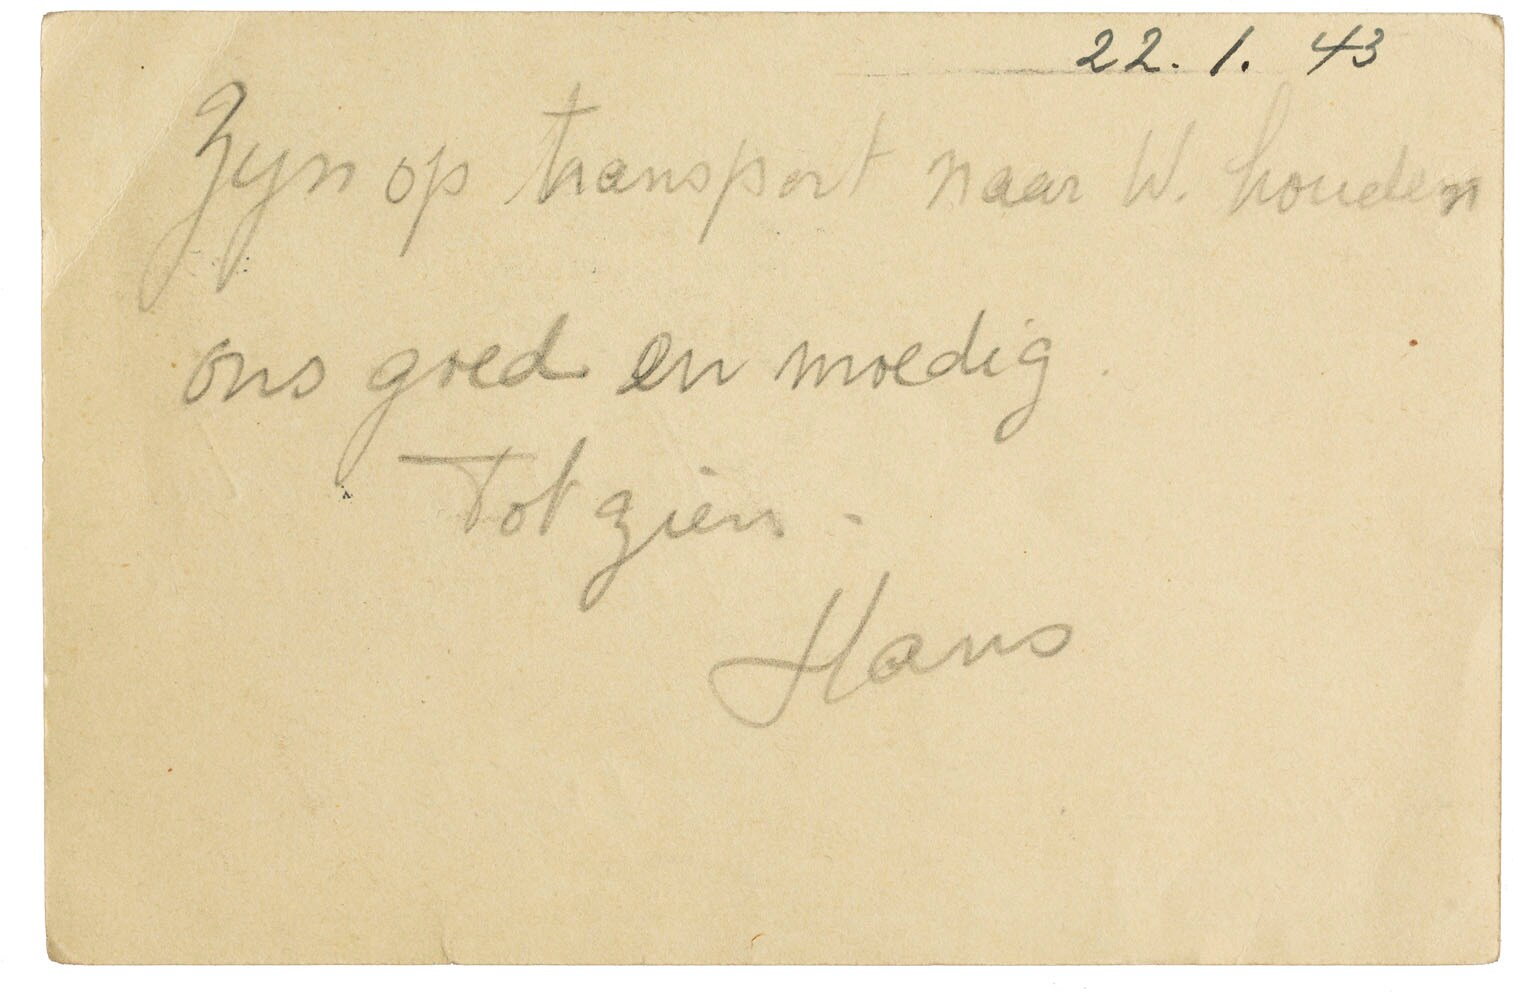 22. 1. 43
Zijn op transport naar W. houden
ons goed en moedig.
Tot ziens -
Hans